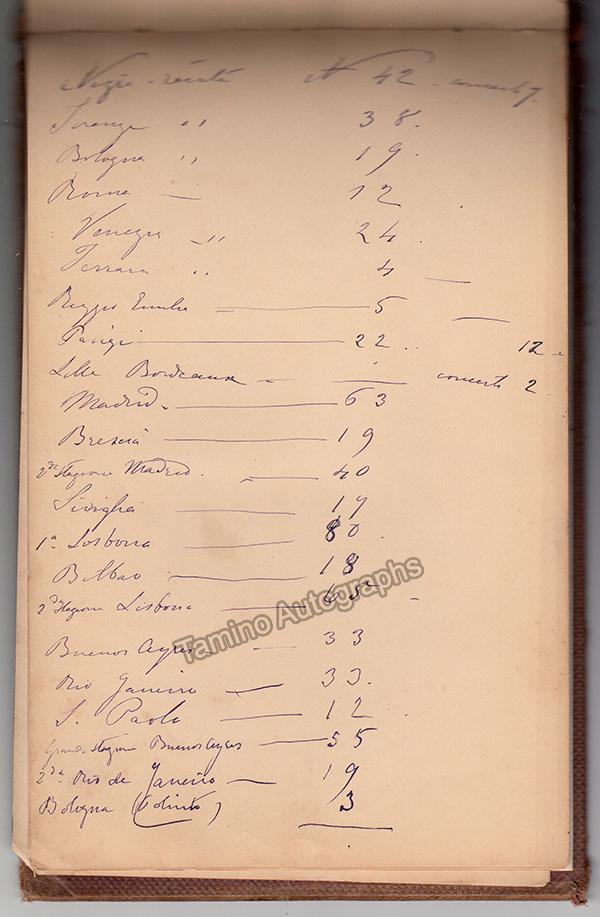 N 42 - concerti 7.
Firenze " 38.
Bologna " 19.
Roma — 12 .
Venezia — " 24 .
Ferrara " 4 —
Reggio Emilia — 5 —
Parigi — 22 .. 12 -
Lille Bordeaux - — concerti 2
Madrid. — 63
Brescia — 19
2ª Stagione Madrid. — 40
Siviglia — 17
1ª Lisbona — 80.
Bilbao — 18
2ª Stagione Lisbona — 65 -
Buenos Ayres — 33
Rio Janeiro — 33.
S. Paolo — 12 .
Grand. Stagione Buenos Ayres — 55
2ª Rio de Janeiro — 19
Bologna ( ) 3
Tamino Autographs